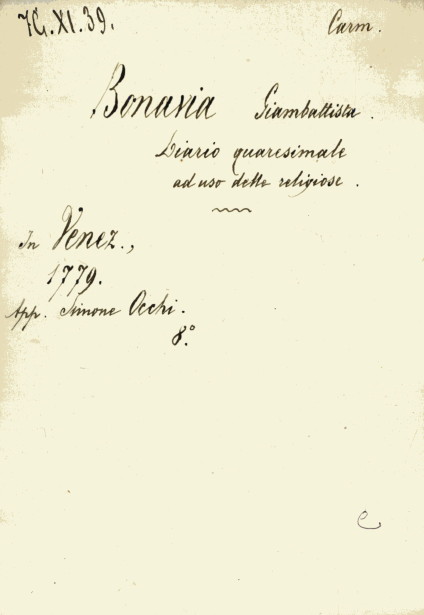 7G.XI.39.
Carm.
Bonavia Giambattista.
Diario quaresimale
ad uso delle religiose.
In Venez.,
1779.
App. Simone Occhi.
8.°
e